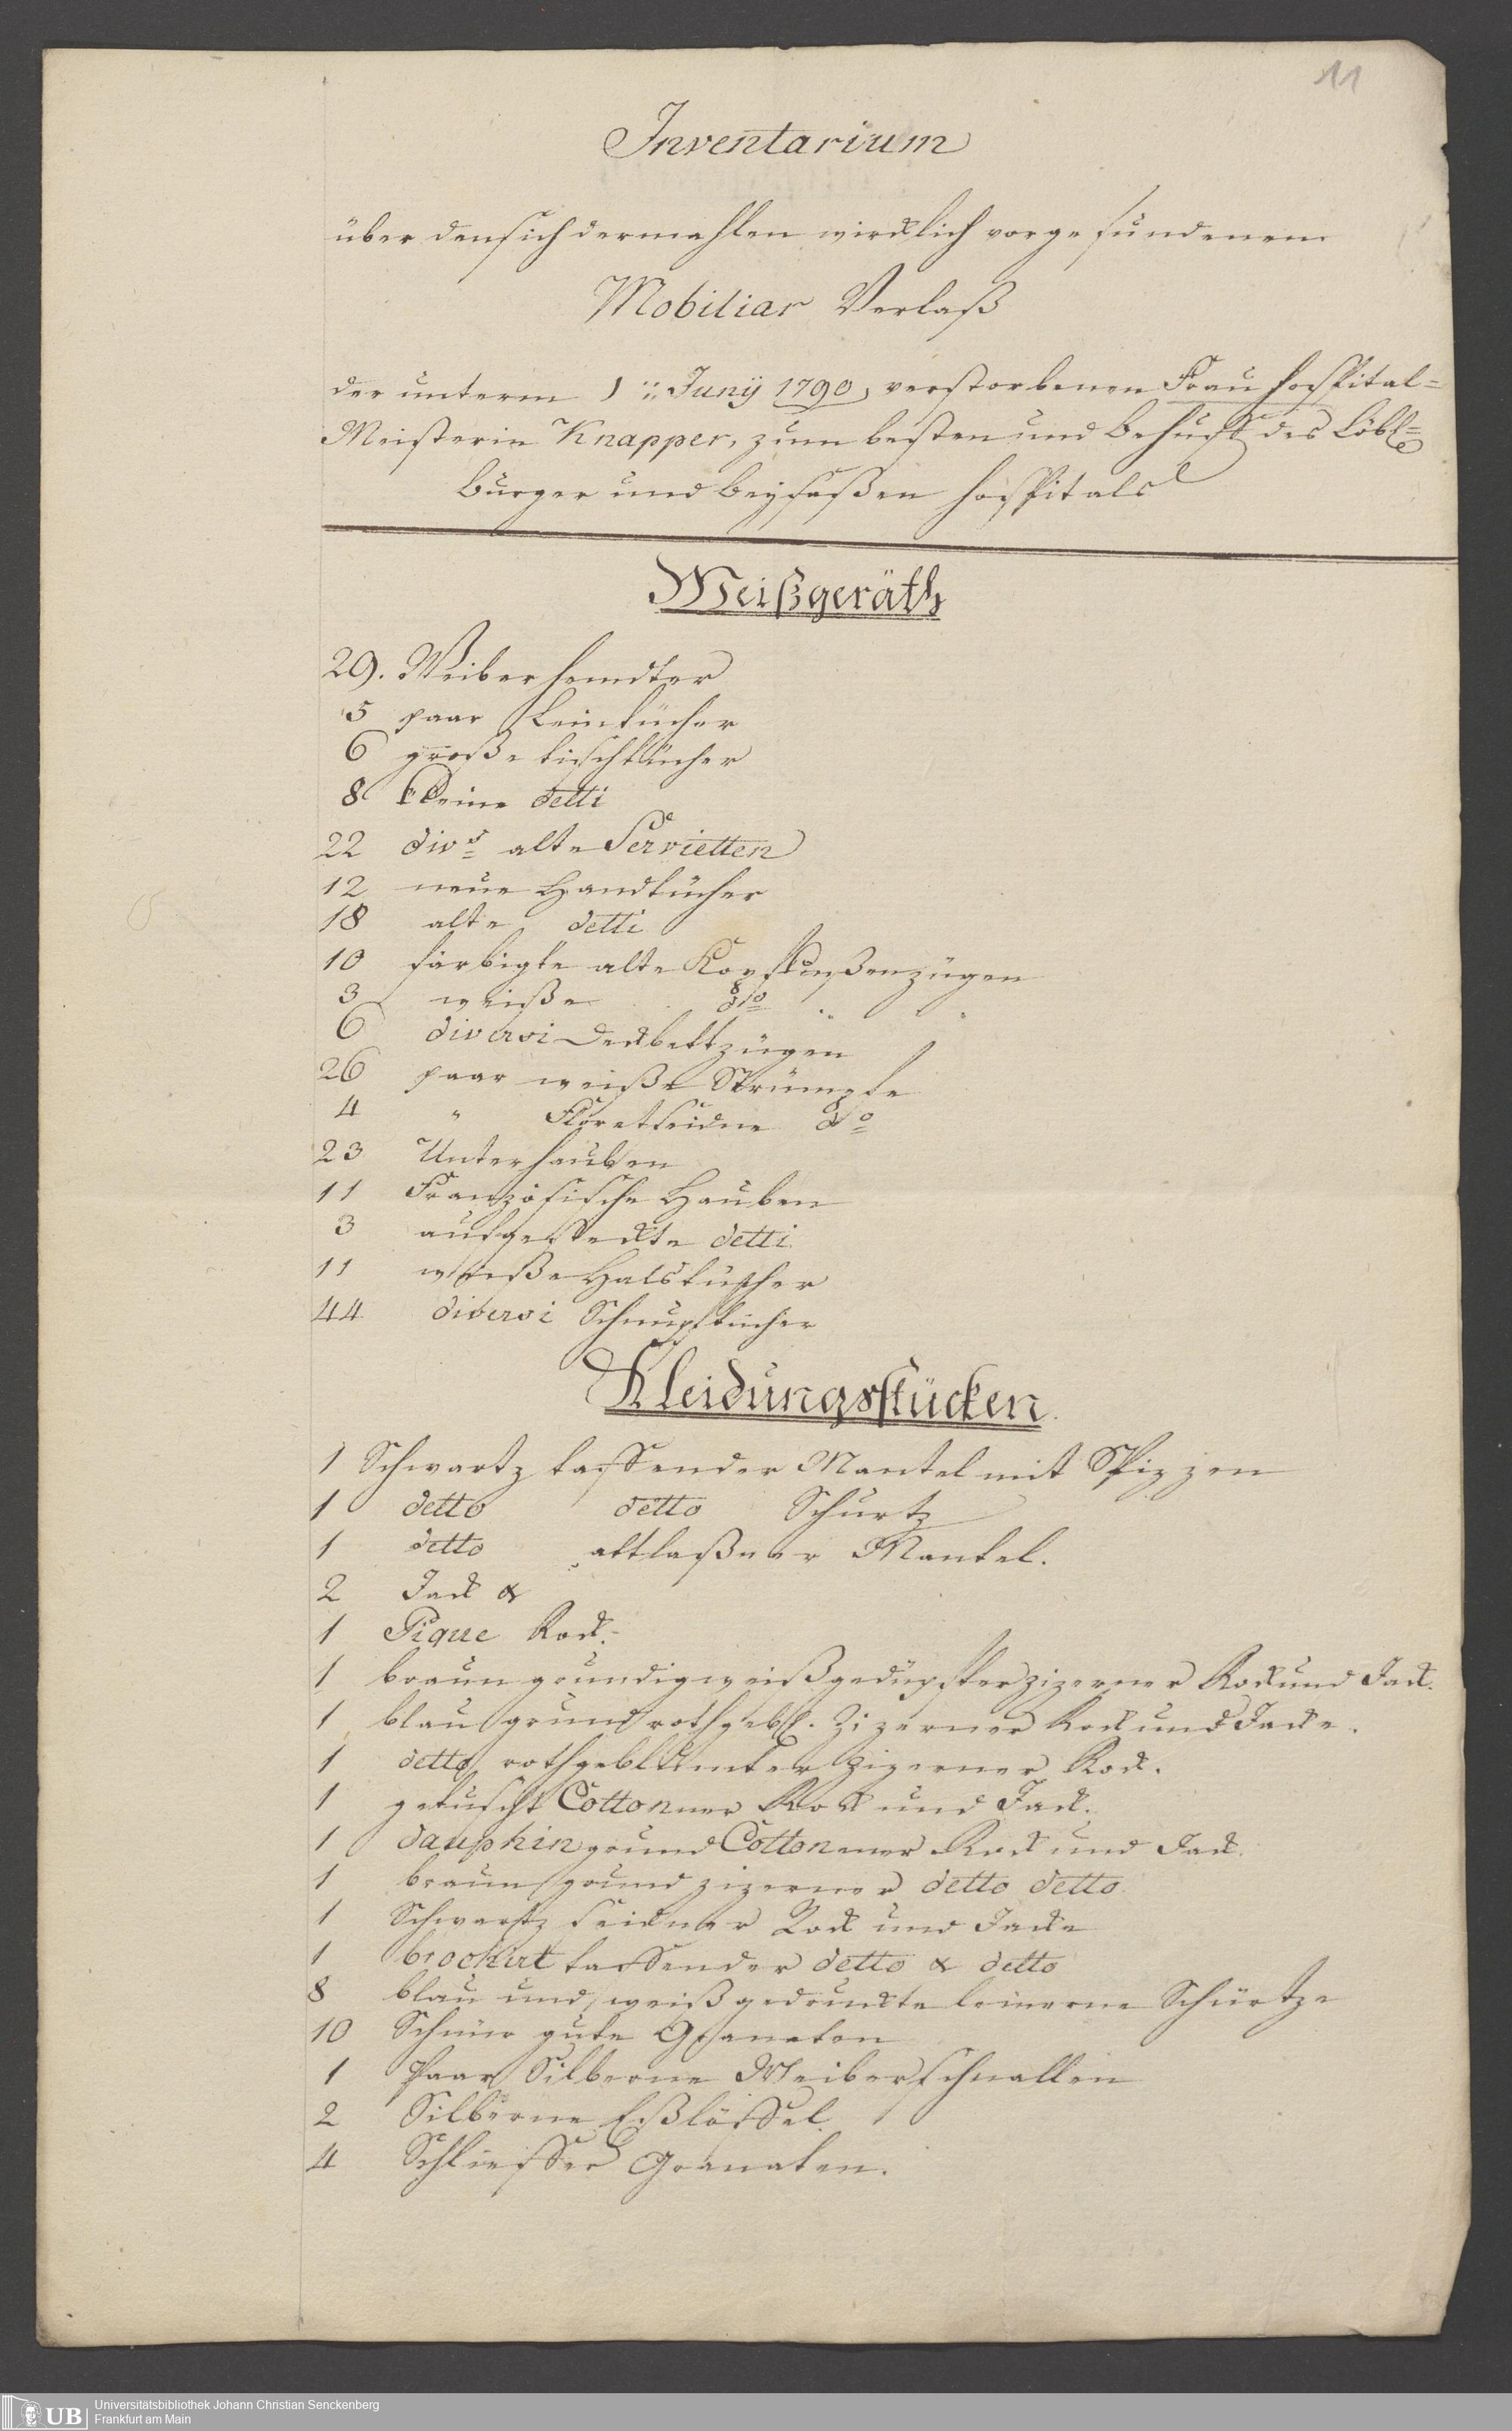 11
Inventarium
über den sich dermahlen wircklich vorgefundenen
Mobiliar Verlaß
der unterm 1:: Junÿ 1790, verstorbenen Frau Hospital=
Meisterin Knapper, zum besten und Behuf des Löbl=
Burger und Beysaßen Hospitals
Weißgeräth
29. Weiber hemdter
5 paar Leintücher
6 große tischtücher
8 kleine detti
22 divs alte Servietten
12 neue Handtücher
18 alte detti
10 färbigte alte Kopfküßenzügen
3 weiße do " "
6 diversi Deckbettzügen
26 paar weiße Strümpfe
4 " Floretseidne do
23 Unterhauben
11 Französische Hauben
3 aufgesteckte detti
11 weiße Halstücher
44 diversi Schnupftücher
Kleidungsstücken.
1 Schwartz taffender Mantel mit Spizzen
1 detto detto Schurtz
1 detto attlaßner Mantel.
2 Jack &
1 Pique Rock.
1 braun grundig weiß gedüpfter zizerner Rock und Jack.
1 blau grund rothgebl. Zizerner Rock und Jacke.
1 detto rothgeblümter zizerner Rock.
1 getuscht Cottonner Rock und Jack.
1 dauphin grund Cottonner Rock und Jack.
1 braun grund zizerner detto detto
1 Schwartz seidner Rock und Jacke
1 brochirt taffender detto & detto
8 blau und weiß gedruckte leinerne Schürtze
10 Schnür gute Granaten
1 Paar Silberne Weiberschnallen
2 Silberne Eßlöffel.
4 Schliesser Granaten.
UB
Universitätsbibliothek Johann Christian Senckenberg
Frankfurt am Main